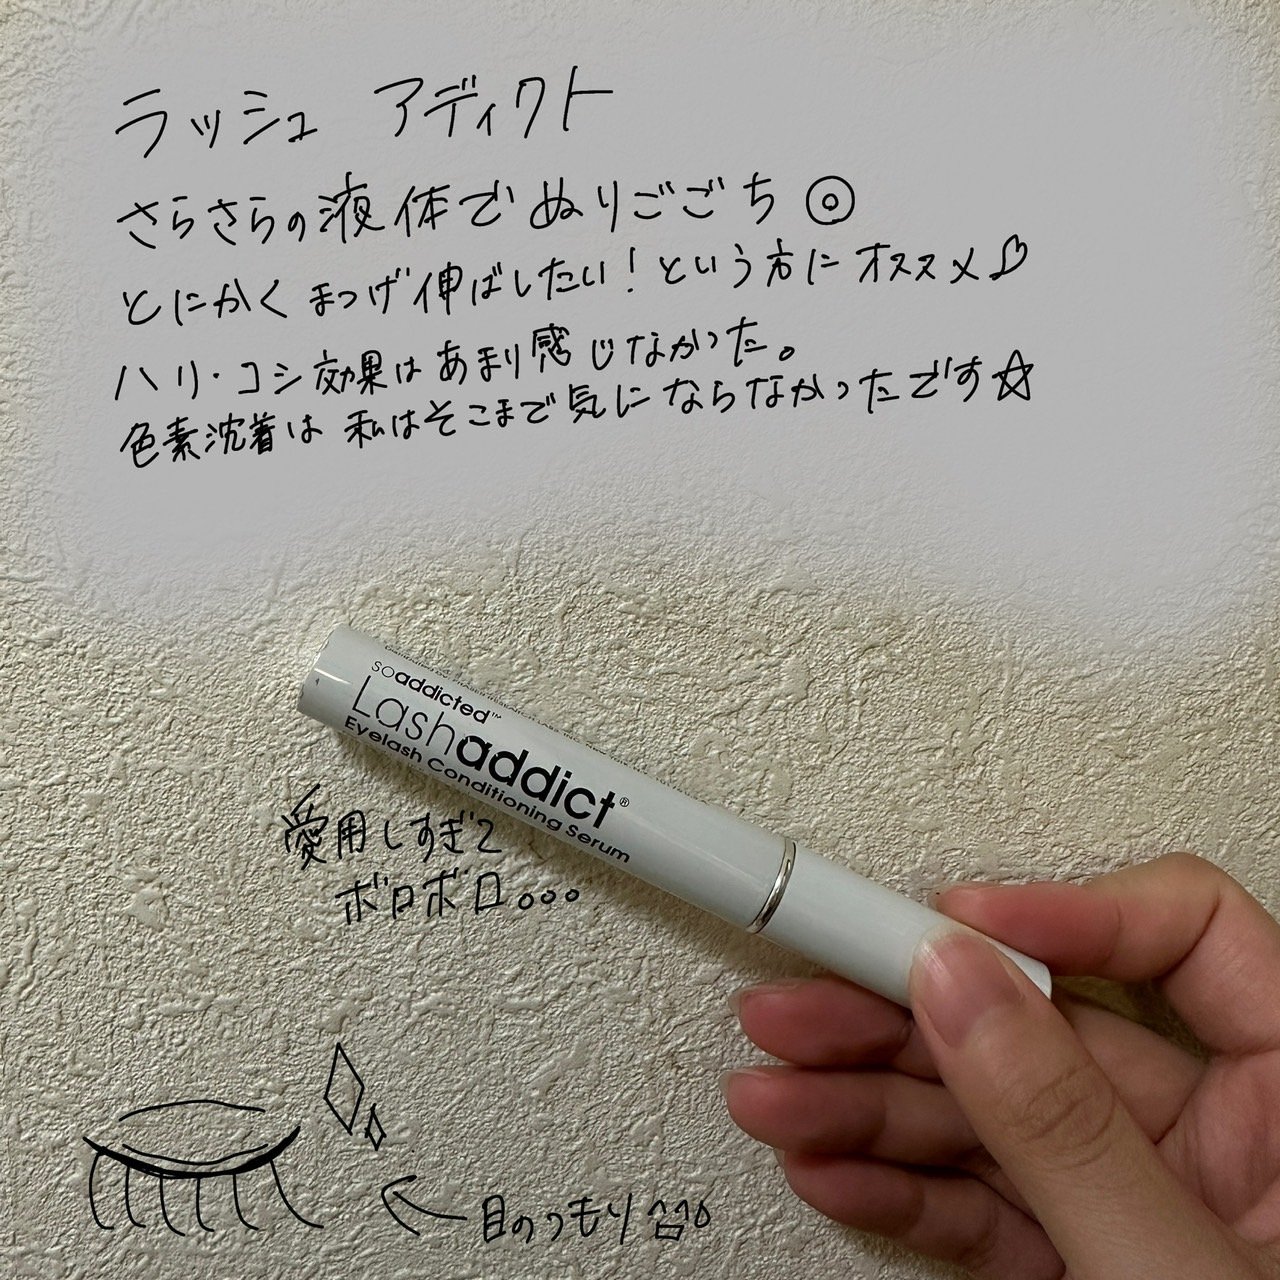 ラッシュ アディクト
さらさらの液体でぬりごごち◎
とにかくまつげ伸ばしたい！という方にオススメ♡
ハリ・コシ効果はあまり感じなかった。
色素沈着は私はそこまで気にならなかったです☆
soaddicted™
Lashaddict®
Eyelash Conditioning Serum
愛用しすぎて
ボロボロ。。。
目のつもり